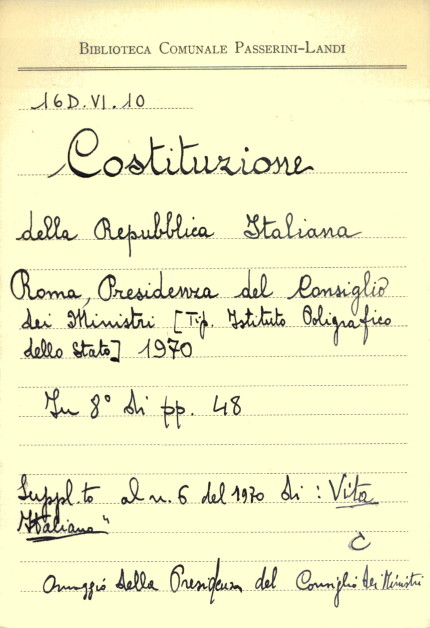 BIBLIOTECA COMUNALE PASSERINI-LANDI
16D.VI.10
Costituzione
della Repubblica Italiana
Roma, Presidenza del Consiglio
dei Ministri [Tip. Istituto Poligrafico
dello Stato] 1970
In 8° di pp. 48
Suppl.to al n. 6 del 1970 di : Vita
Italiana"
C
Omaggio della Presidenza del Consiglio dei Ministri